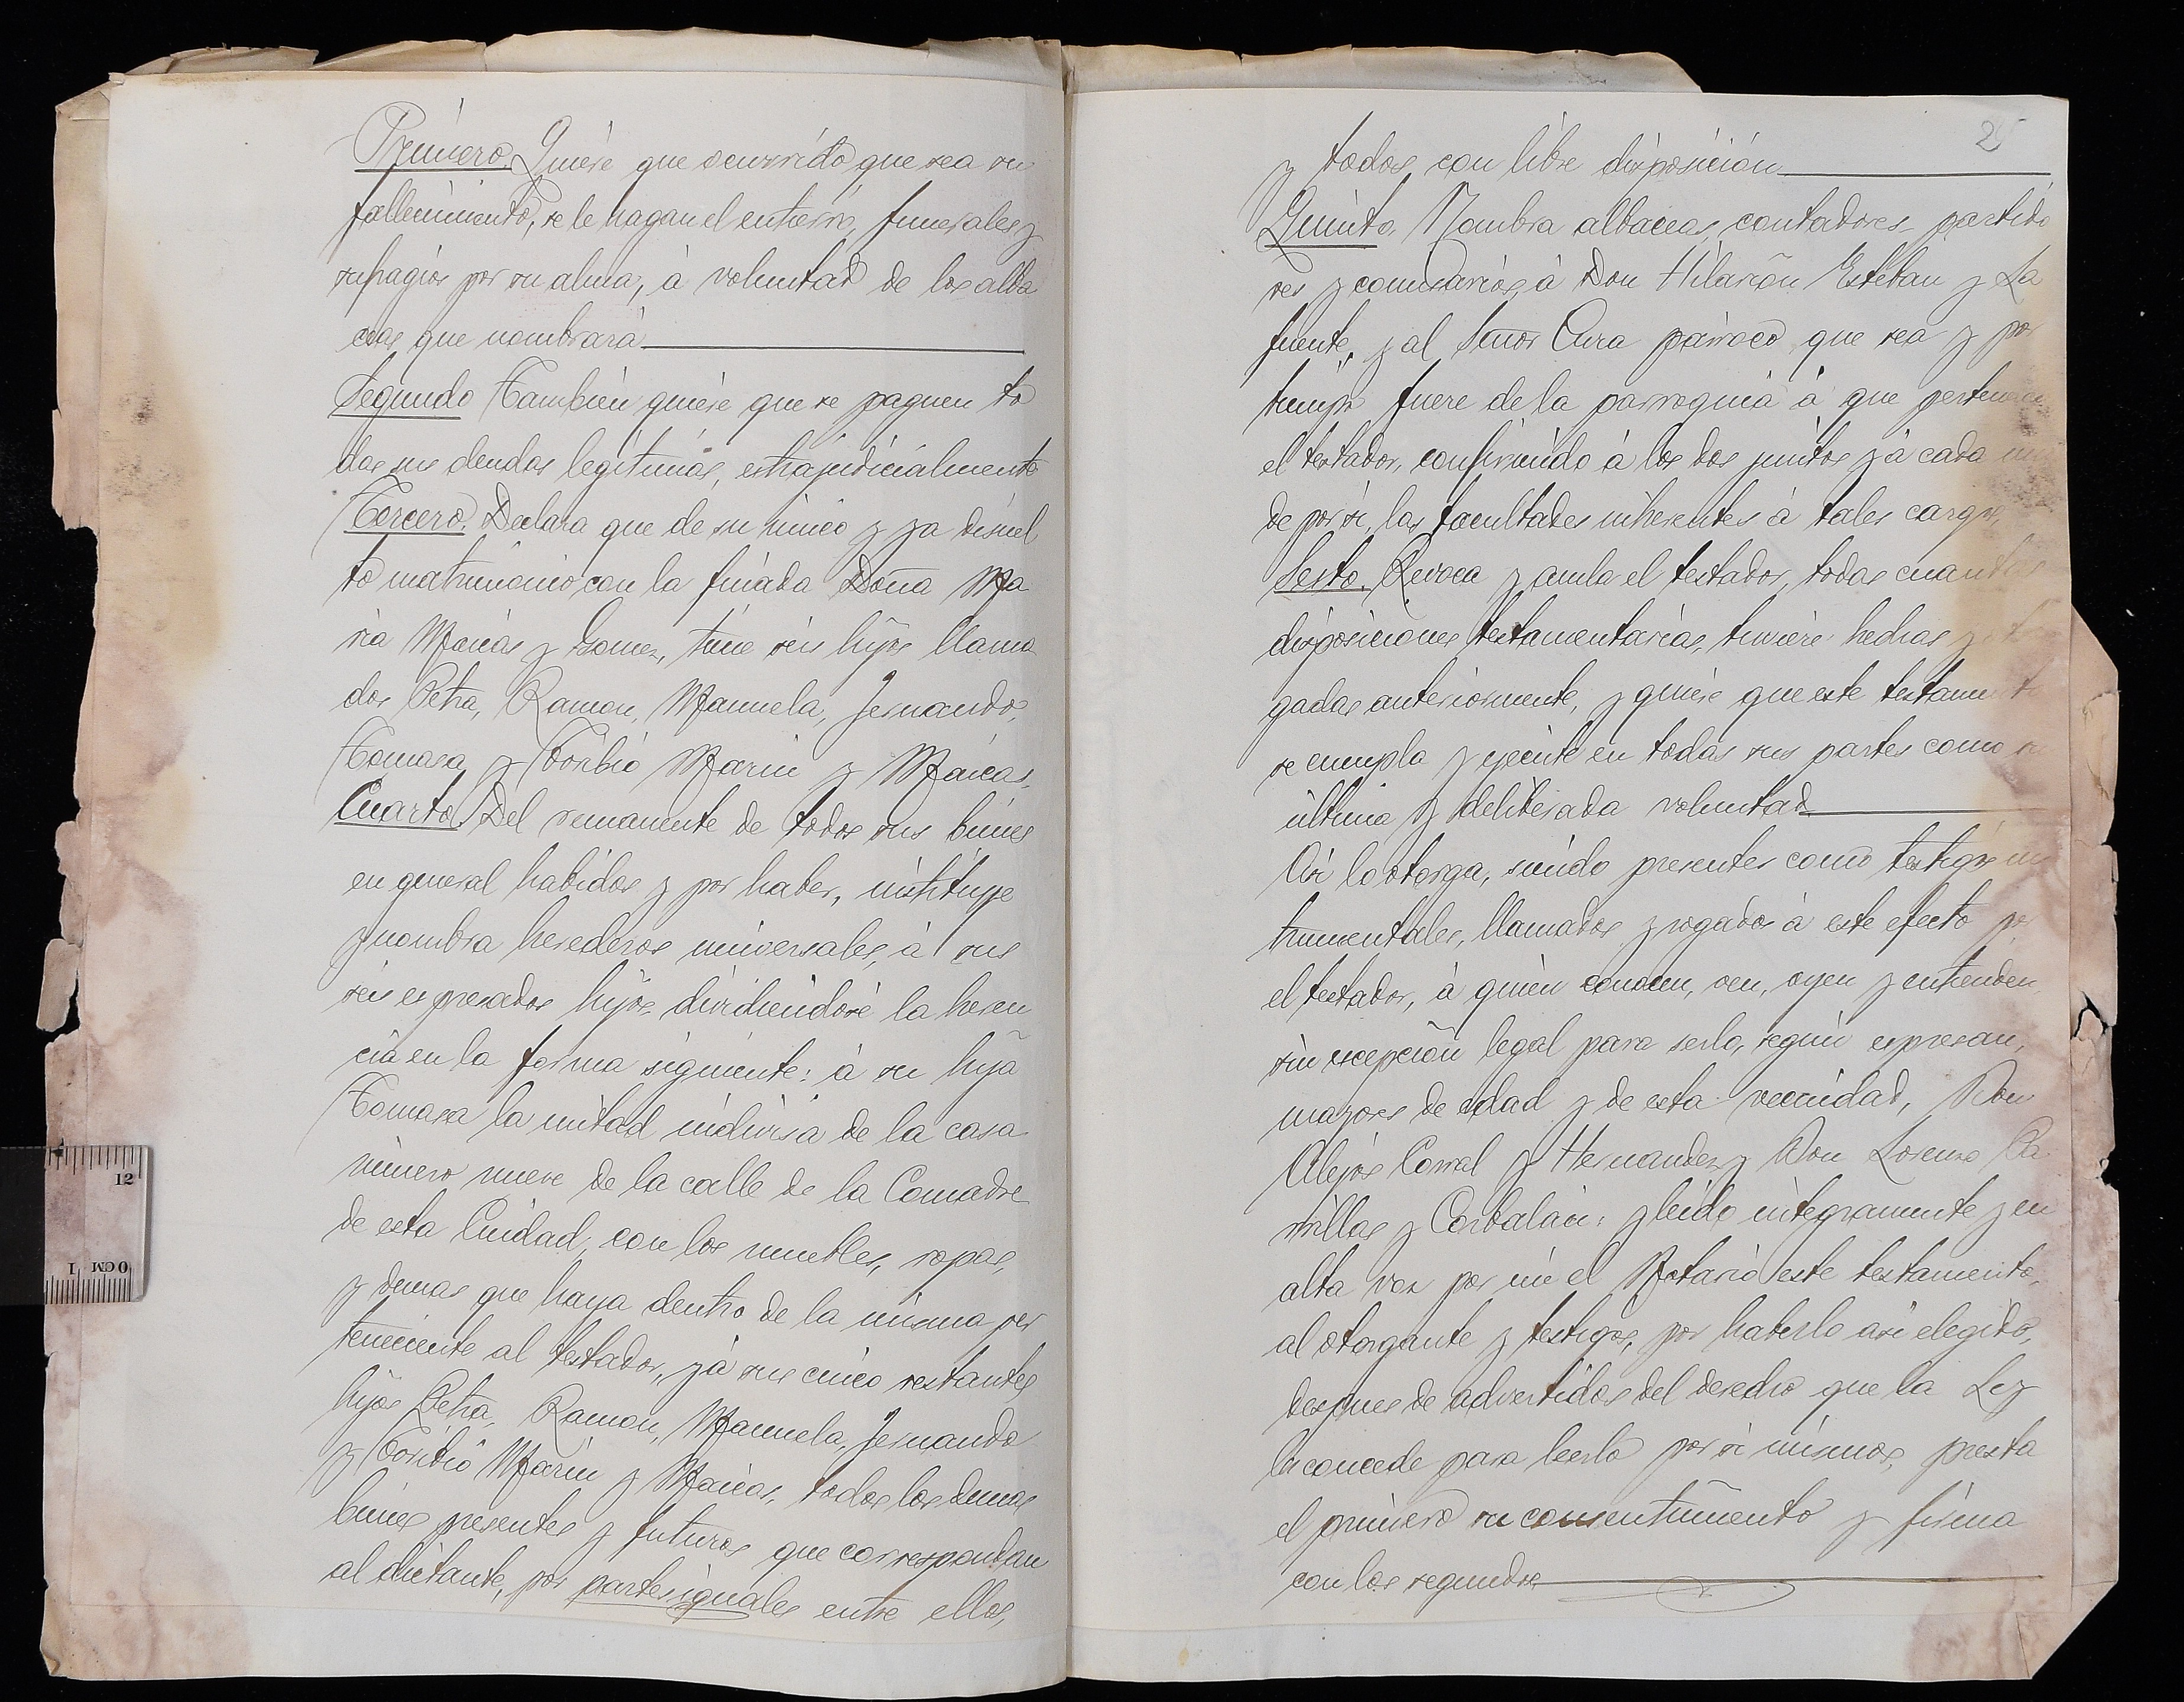 Primero. Quiere que ocurrido que sea su
fallecimiento, se le hagan el entierro, funerales y
sufragios por su alma, à voluntad de los alba
ceas que nombrarà
Segundo También quiere que se paguen to
das sus deudas legitimas, estrajudicialmente
Tercero. Declara que de su único y ya disuel
to matrimonio con la finada Doña Ma
ria Macias y Gomez, tiene seis hijos llama
dos Petra, Ramon, Manuela, Fernando,
Tomasa y Toribio Marin y Macias.
Cuarto. Del remanente de todos sus bienes
en general habidos y por haber, instituye
y nombra herederos universales, à sus
seis espresados hijos, dividiendose la heren
cia en la forma siguiente: à su hija
Tomasa la mitad indivisa de la casa
número nueve de la calle de la Comadre
de esta Ciudad, con los muebles, ropas,
y demas que haya dentro de la misma per
teneciente al testador, y à sus cinco restantes
hijos Petra, Ramon, Manuela, Fernando
y Toribio Marin y Macias, todos los demas
bienes presentes y futuros que correspondan
al dictante, por partes iguales entre ellos,
25
y todos con libre disposición
Quinto. Nombra albaceas, contadores partido
res y comisarios, à Don Hilarión Esteban y La
fuente, y al Señor Cura párroco que sea y por
tiempo fuere de la parroquia à que pertenezca
el testador, confiriendo à los dos juntos y à cada
de por si, las facultades inherentes à tales cargos,
Sesto. Revoca y anula el testador, todas cuantas
disposiciones testamentarias, tuviere hechas y
gadas anteriormente, y quiere que este testamento
se cumpla y ejecute en todas sus partes como su
última y deliberada voluntad
Asi lo otorga, siendo presentes como testigos ins
trumentales, llamados y rogados à este efecto por
el testador, à quien conocen, ven, oyen y entienden,
sin escepción legal para serlo, según espresan,
mayores de edad y de esta vecindad, Don
Alejos Corral y Hernandez y Don Lorenzo Ca
nillas y Corbalán: y leido integramente y en
alta voz por mi el Notario este testamento,
al otorgante y testigos, por haberlo asi elegido,
despues de advertidos del derecho que la Ley
les concede para leerlo por si mismos, presta
el primero su consentimiento y firma
con los segundos